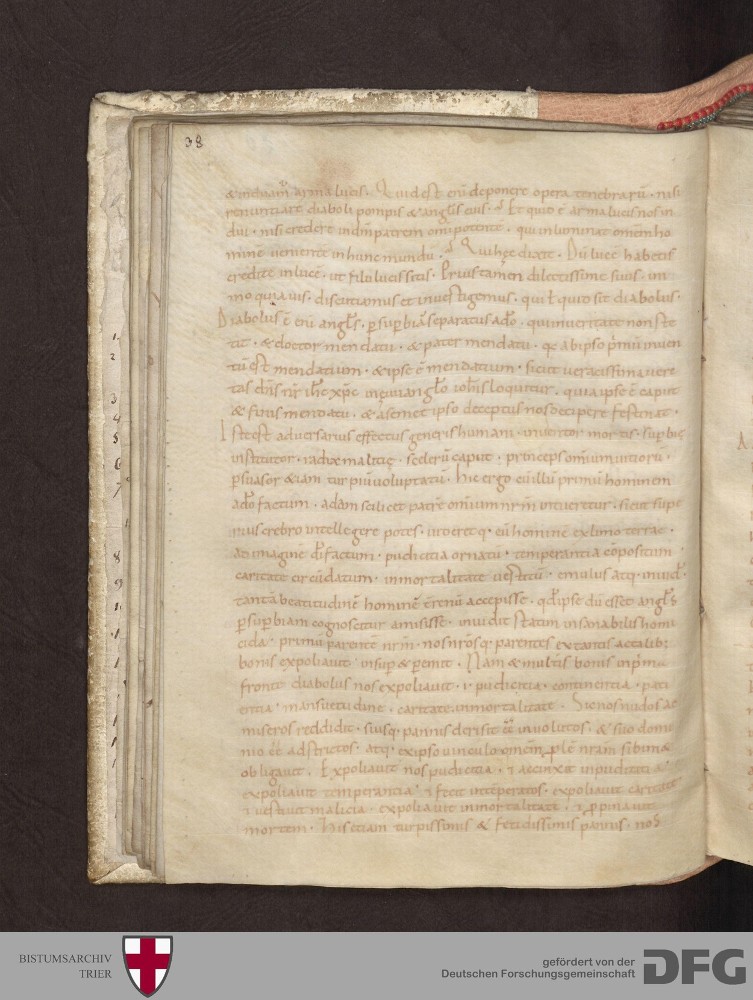 38
& induam̄ arma lucis. Quid est enī deponere opera tenebrarū. nisi
renuntiare diaboli pompis & anglīs eius. Et quid ē arma lucis nos in
dui. nisi credere in dm̄ patrem omīpotentē. qui inluminat omēm ho
minē uenientē in hunc mundū. Qui hęc dixit. Dū lucē habetis
credite in lucē. ut filii lucis sitis. Prius tam̄en dilectissime suus. im
mo quia uis. discutiamus et inuestigemus. qui ł quid sit diabolus.
Diabolus ē enī anglīs. p supbiā separatus a dō. qui in ueritate non ste
tit. & doctor mendatii. & pater mendatii. qa ab ipso p̄mū inuen
tū est mendatium. & ipse ē mendatium. sicut ueracissima ueri
tas dn̄s nr̄ ih̄c xp̄c in euuangłio loquitur. quia ipse ē caput
& finis mendatii. & a semet ipso deceptus nos decipere festinat.
Iste est aduersarius effectus generis humani. inuentor mortis. supbię
institutor. radix malitię. scelerū caput. princeps omium uitiorū.
psuasor etiam turpiū uoluptatū. hic ergo cū illū primū hominem
a dō factum. adam scilicet patrē omium nrm̄ intueretur. sicut supe
rius crebro intellegere potes. uideretq. eū hominē ex limo terrae.
ad imaginē dī factum. pudicitia ornatū. temperantia cōpositum
caritate circūdatum. inmortalitate uestitū. emulus atq. inuidꝰ.
tantā beatitudinē hominē terrenū accepisse. qđ ipse dū esset anglīs
p supbiam cognoscitur amisisse. inuidit statim insanabilis homi
cida. primū parentē nrm̄. nos nrosq. parentes ex tantis ac talib;
bonis expoliauit. insup & pemit. Nam & multis bonis inpmis
fronte diabolus nos expoliauit. i. pudicitia. continentia. pati
entia. mansuetudine. caritate. inmortalitate. Sic nos nudos ac
miseros reddidit. suisq. pannis
nio eē adstrictos. atq. ex ipso uinculo omēm plē nrām sibimet
obligauit. Expoliauit nos pudicitia. & accinxit inpudicitia.
expoliauit temperantia. & fecit intēperatos. expoliauit caritate
& uestiuit malicia. expoliauit inmortalitate. & ppinauit
mortem. His etiam turpissimis & fetidissimis pannis. nos
1.
2
3
4
5
6
7
8
9
BISTUMSARCHIV
TRIER
gefördert von der
Deutschen Forschungsgemeinschaft
DFG